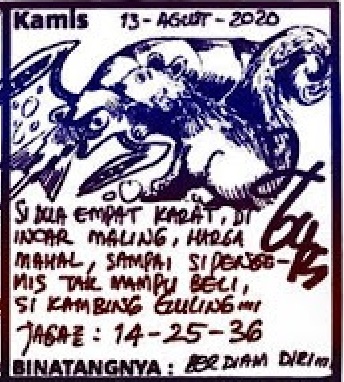 Kamis 13-AGUST-2020
SI DUA EMPAT KARAT, DI
INCAR MALING, HARGA
MAHAL, SAMPAI SI PENGE-
MIS TAK MAMPU BELI,
SI KAMBING GULING...
JAGAE : 14-25-36
BINATANGNYA : BERDIAM DIRI...